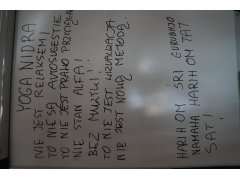 YOGA NIDRA
NIE JEST RELAKSEM!
TO NIE SĄ AUTOSUGESTIE
TO NIE JEST PRAWO PRZYCIĄGANIA
NIE STAN ALFA!
BEZ MUZYKI!
TO NIE JEST WIZUALIZACJA
NIE JEST NOWĄ METODĄ
HARIH OM SRI GURUBHJO
NAMAHA HARIH OM TAT
SAT!